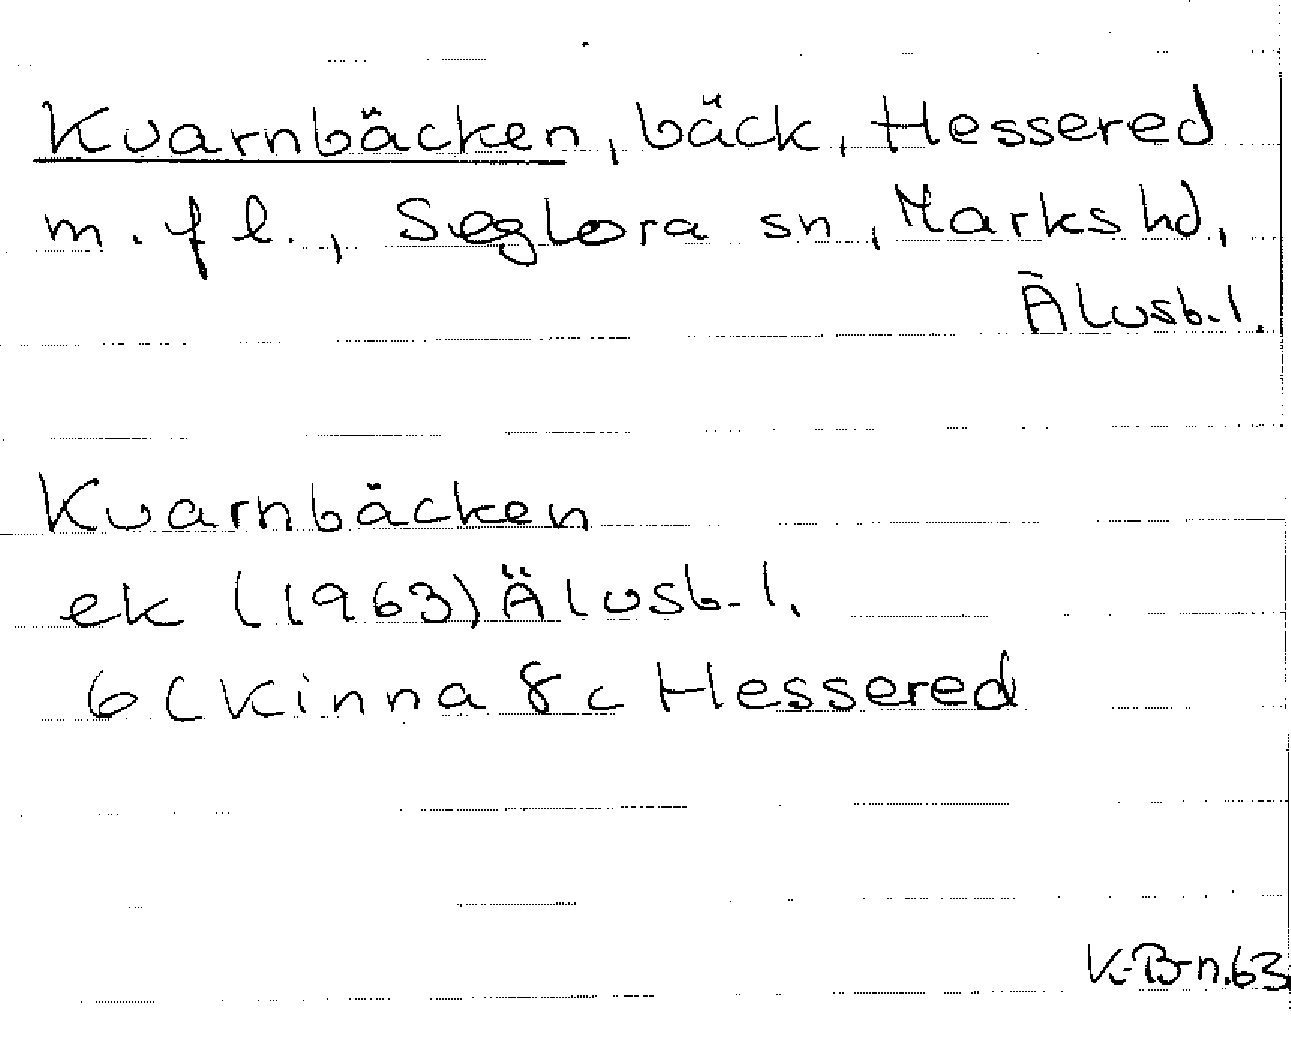 Kvarnbäcken, bäck, Hessered
m. fl., Seglora sn, Marks hd,
Älvsb. l.
Kvarnbäcken
ek (1963) Älvsb. l.
6C Kinna 8c Hessered
K-B-n. 63